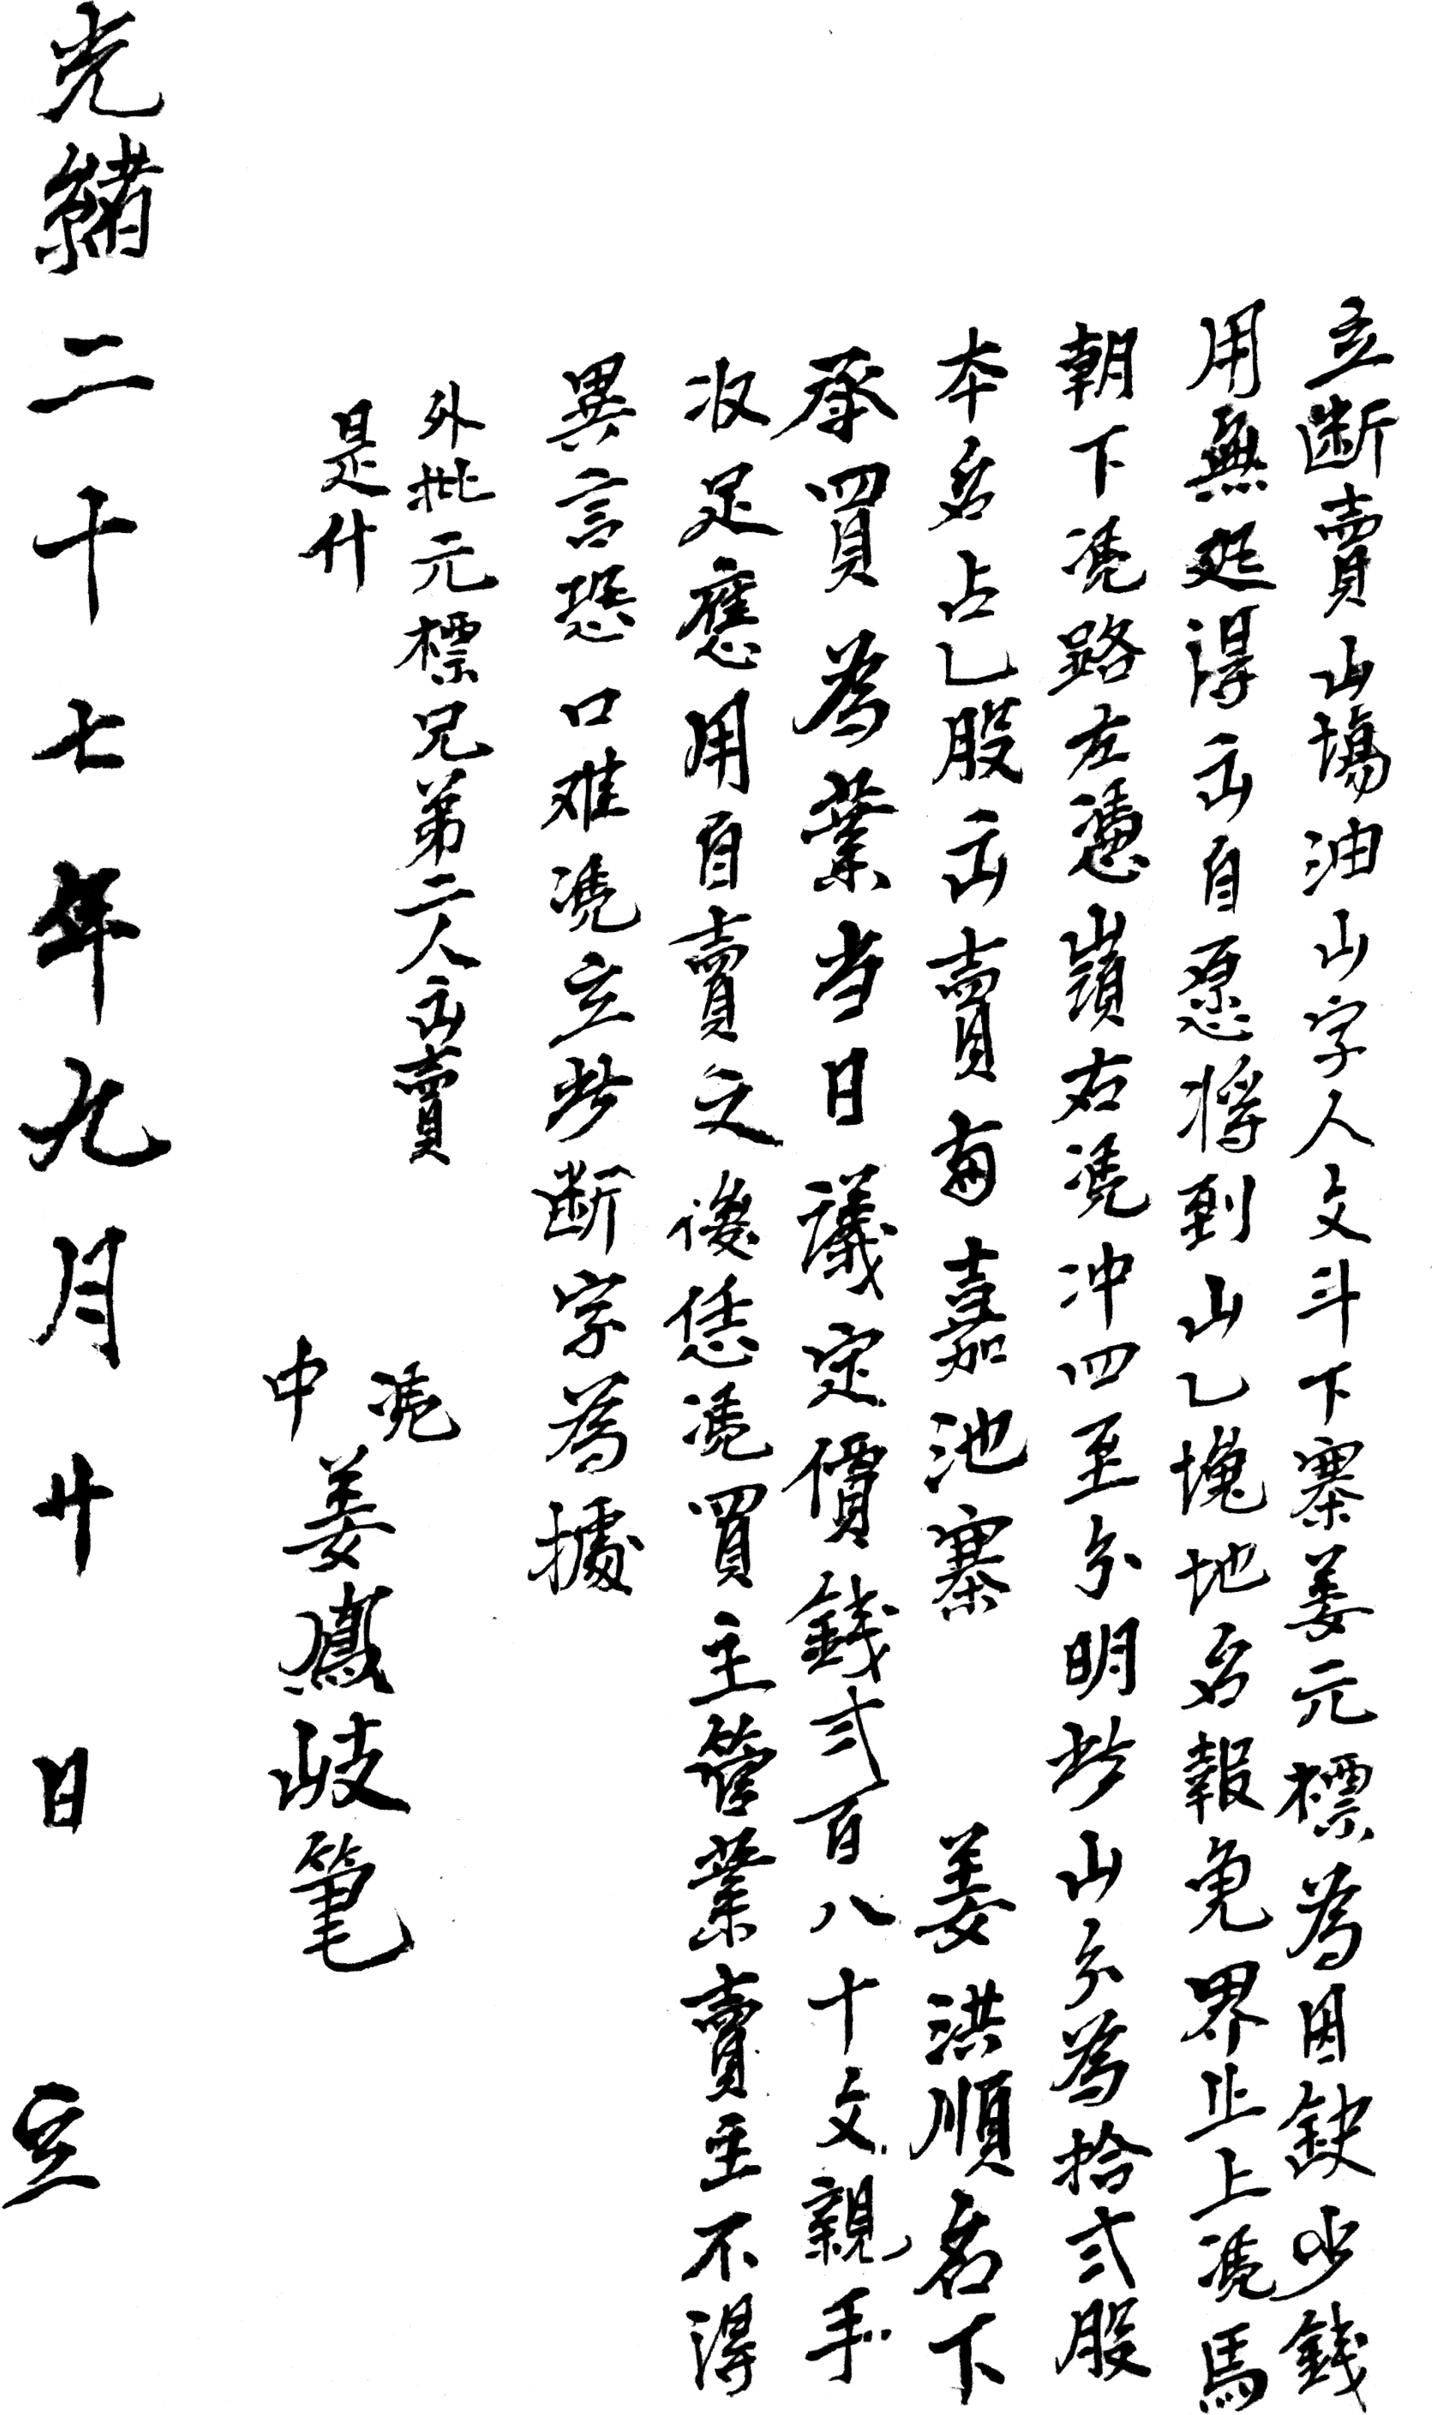 立断賣山塲油山字人文斗下寨姜元標為因缺少錢
用無処得出自愿将到山乙塊地名報兔界止上凴馬
朝下凴路左憑嶺右凴冲四至分明此山分為拾弍股
本名占乙股出賣與嘉池寨 姜洪順名下
承買為業当日議定價錢弍百八十文親手
收足應用自賣之後恁凴買主管業賣主不得
異言恐口难凴立此断字為據
外批元標兄弟二人出賣
是什
凴
中
姜鳳岐筆
光緒二十七年九月廿日 立